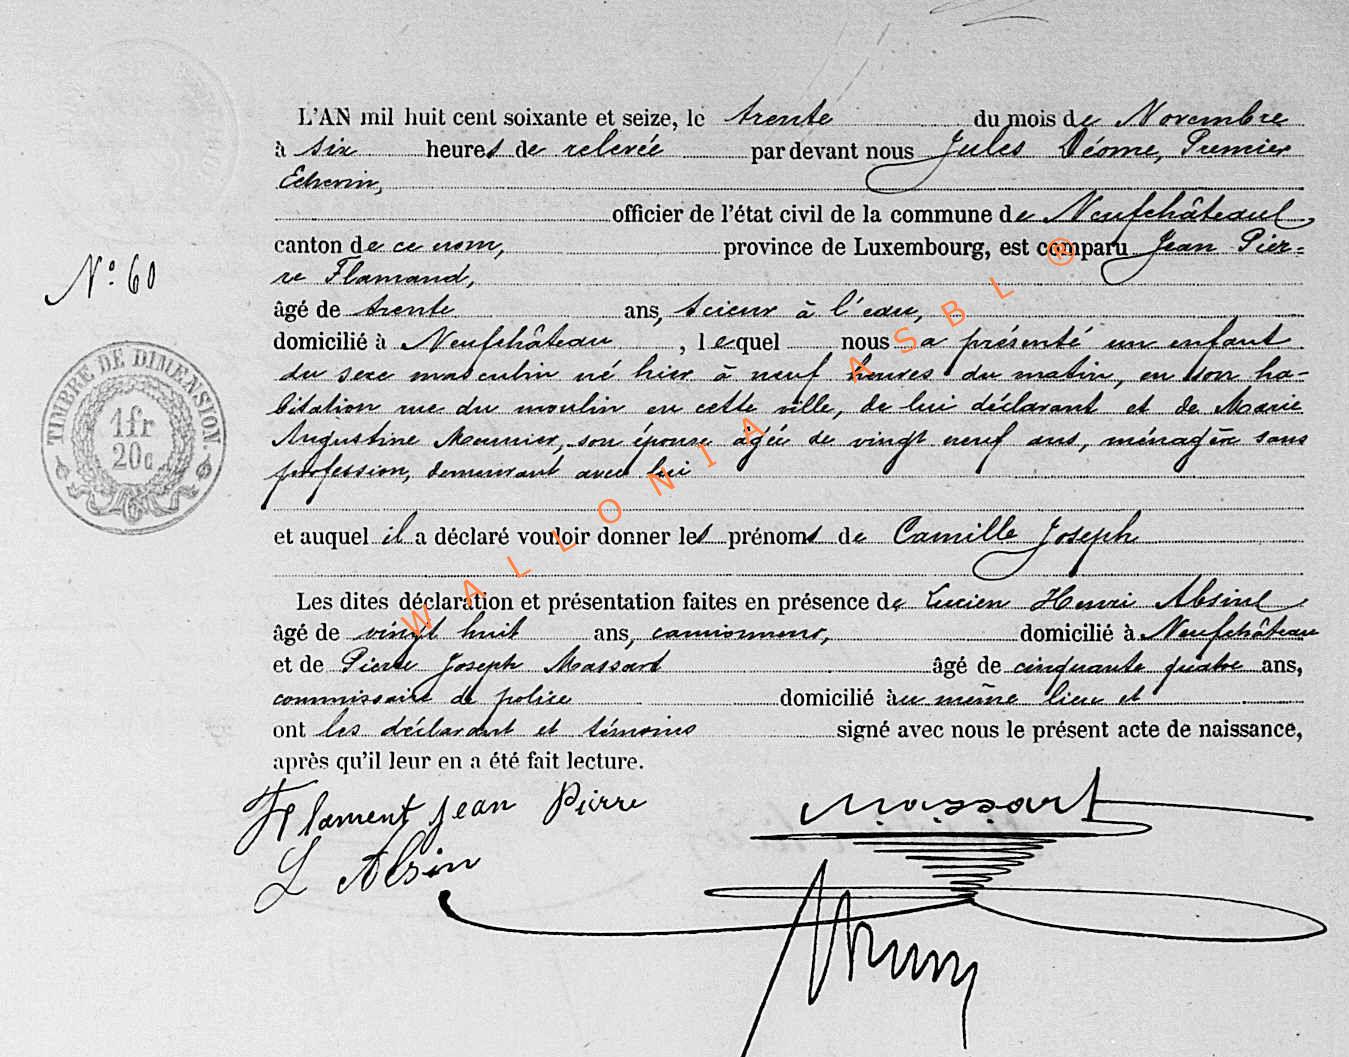 L'AN mil huit cent soixante et seize, le trente du mois de Novembre
à six heures de relevée par devant nous Jules Déome, Premier
Echevin,
officier de l'état civil de la commune de Neufchâteau,
canton de ce nom, province de Luxembourg, est comparu Jean Pier=
re Flamand,
âgé de trente ans, scieur à l'eau,
domicilié à Neufchâteau, lequel nous a présenté un enfant
du sexe masculin né hier à neuf heures du matin, en son ha-
bitation rue du moulin en cette ville, de lui déclarant et de Marie
Augustine Meunier, son épouse âgée de vingt neuf ans, ménagère sans
profession, demeurant avec lui
et auquel il a déclaré vouloir donner les prénoms de Camille Joseph
Les dites déclaration et présentation faites en présence de Lucien Henri Absine
âgé de vingt huit ans, camionneur, domicilié à Neufchâteau
et de Pierre Joseph Massart âgé de cinquante quatre ans,
commissaire de police domicilié au même lieu et
ont les déclarant et témoins signé avec nous le présent acte de naissance,
après qu'il leur en a été fait lecture.
N° 60
TIMBRE DE DIMENSION.
1fr
20c
Flament jean Pierre
Massart
L Absin
WALLONIA ASBL ®